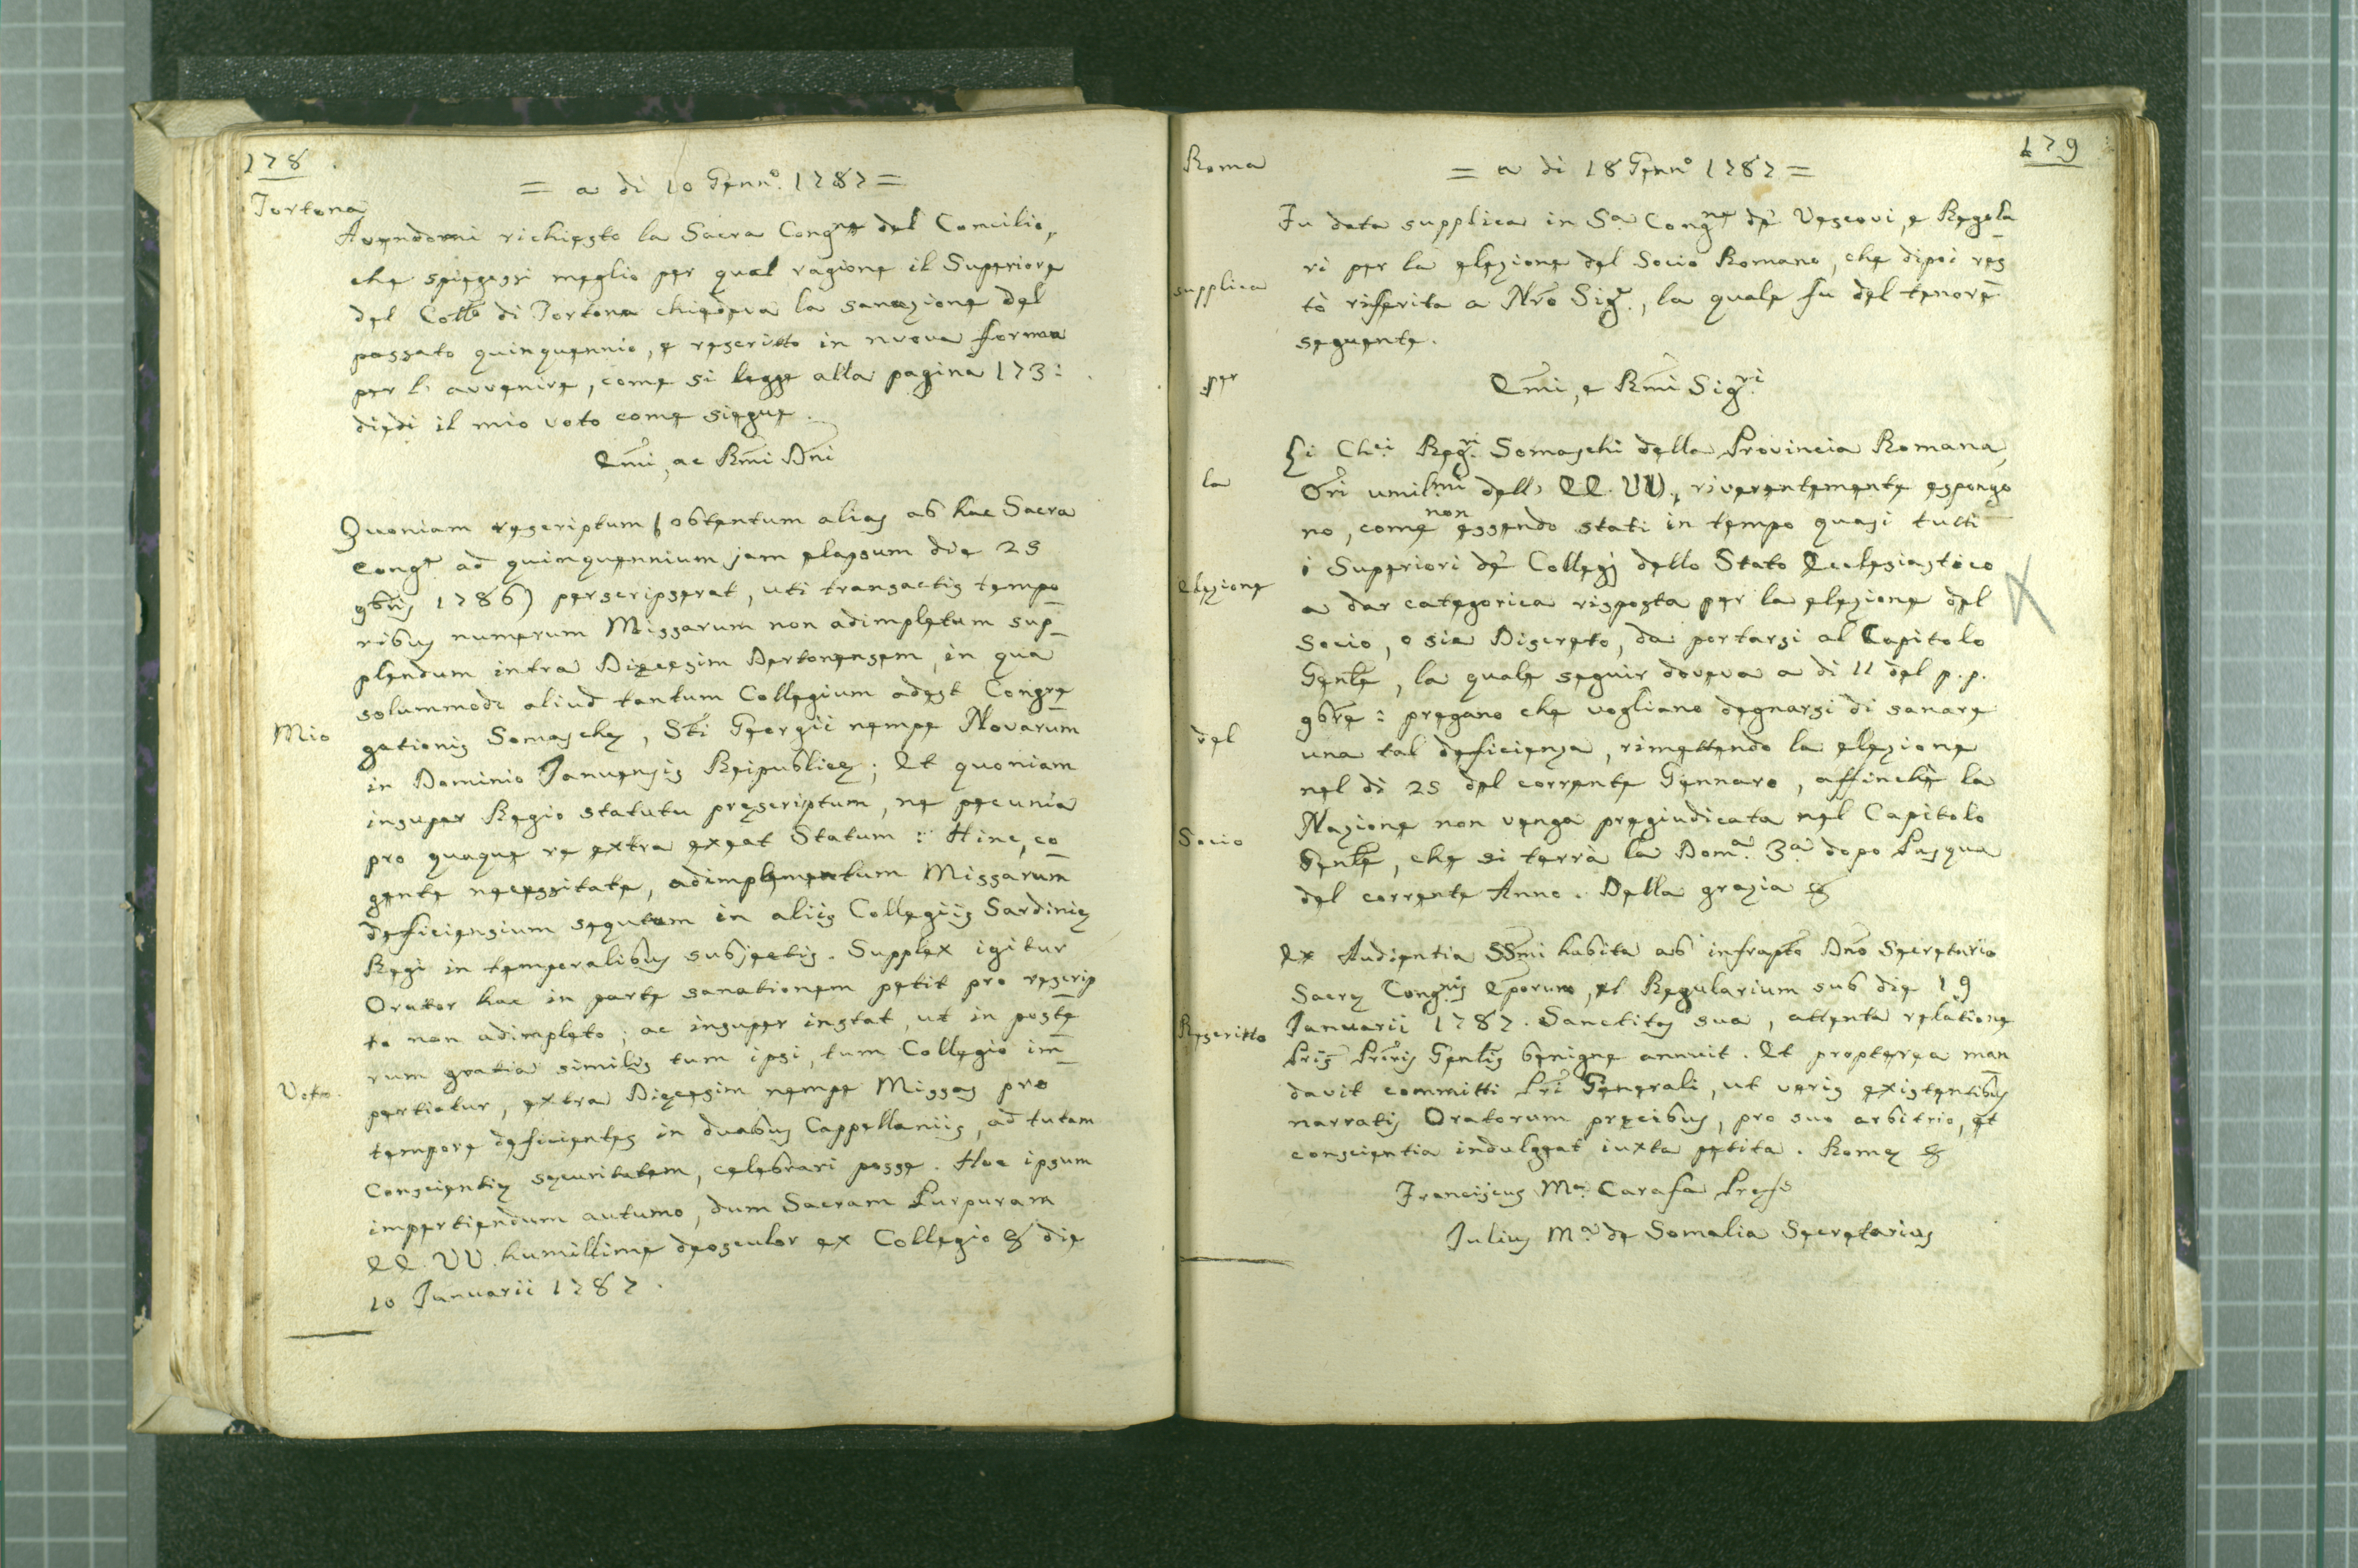 178
= a di 10 Genn.º 1787 =
Tortona
Avendomi richiesto la Sacra Congne del Concilio,
che spiegassi meglio per qual ragione il Superiore
del Collo di Tortona chiedeva la sanazione del
passato quinquennio, e rescritto in nuova forma
per l' avvenire, come si legge alla pagina 173:
diedi il mio voto come siegue.
Emi, ac Rmi Dni
Quoniam rescriptum (obtentum alias ab hac Sacra
Conge ad quinquennium jam elapsum die 25
9bris 1786) perscripserat, uti transactis tempo_
ribus numerum Missarum non adimpletum sup_
plendum intra Diæcesim Dertonensem, in qua
solummodo aliud tantum Collegium adest Congre_
Mio
gationis Somaschę, Sti Georgii nempe Novarum
in Dominio Januensis Reipublicę; Et quoniam
insuper Regio statutu pręscriptum, ne pecunia
pro quaque re extra exeat Statum: Hinc, co_
gente necessitate, adimplementum Missarum
deficiensium sequtum in aliis Collegiis Sardinię
Regi in temporalibus subjectis. Supplex igitur
Orator hac in parte sanationem petit pro rescrip_
to non adimpleto; ac insuper instat, ut in poste_
rum gratia similis tum ipsi, tum Collegio im_
Voto.
pertiatur, extra Diæcesim nempe Missas pro
tempore deficientes in duabus Cappellaniis, ad tutam
Conscientię securitatem, celebrari posse. Hoc ipsum
impertiendum autumo, dum Sacram Purpuram
EE. VV. humillime deosculor ex Collegio & die
10 Januarii 1787.
179
Roma
= a di 18 Genn.º 1787 =
Fu data supplica in Sa Congne de' Vescovi, e Regola_
ri per la elezione del Socio Romano, che dipoi res
supplica
tò riferita a Nro Sige., la quale fu del tenore
seguente.
per
Emi, e Rmi Sigri
Li Chei Regri Somaschi della Provincia Romana,
la
Ori umilmi dell' EE. VV., riverentemente espongo
no, come non essendo stati in tempo quasi tutti
i Superiori de' Collegj dello Stato Ecclesiastico
elezione
a dar categorica risposta per la elezione del
Socio, o sia Discreto, da portarsi al Capitolo
Genle, la quale seguir doveva a di 11 del p.p.
9bre: pregano che vogliano degnarsi di sanare
del
una tal deficienza, rimettendo la elezione
nel di 25 del corrente Gennaro, affinchè la
Nazione non venga pregiudicata nel Capitolo
Socio
Genle, che si terrà la Doma. 3a dopo Pasqua
del corrente Anno. Della grazia &
Ex Audientia SSmi habita ab infrapto Dno Secretario
Sacrę Congnis Eporum, et Regularium sub die 19
Rescritto
Januarii 1787. Sanctitas sua, attenta relatione
Pris Pròris Genlis benigne annuit. Et propterea man
davit committi Pri Generali, ut veris existentibus
narratis Oratorum precibus, pro suo arbitrio, et
conscientia indulgeat iuxta petita. Romę &
Franciscus Ma. Carafa Pręfs
Julius Ma. de Somalia Secretarius